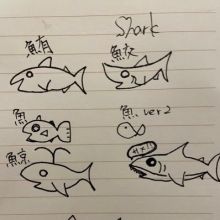 Shark
鮪 鮫
魚 魚 ver2
鯨